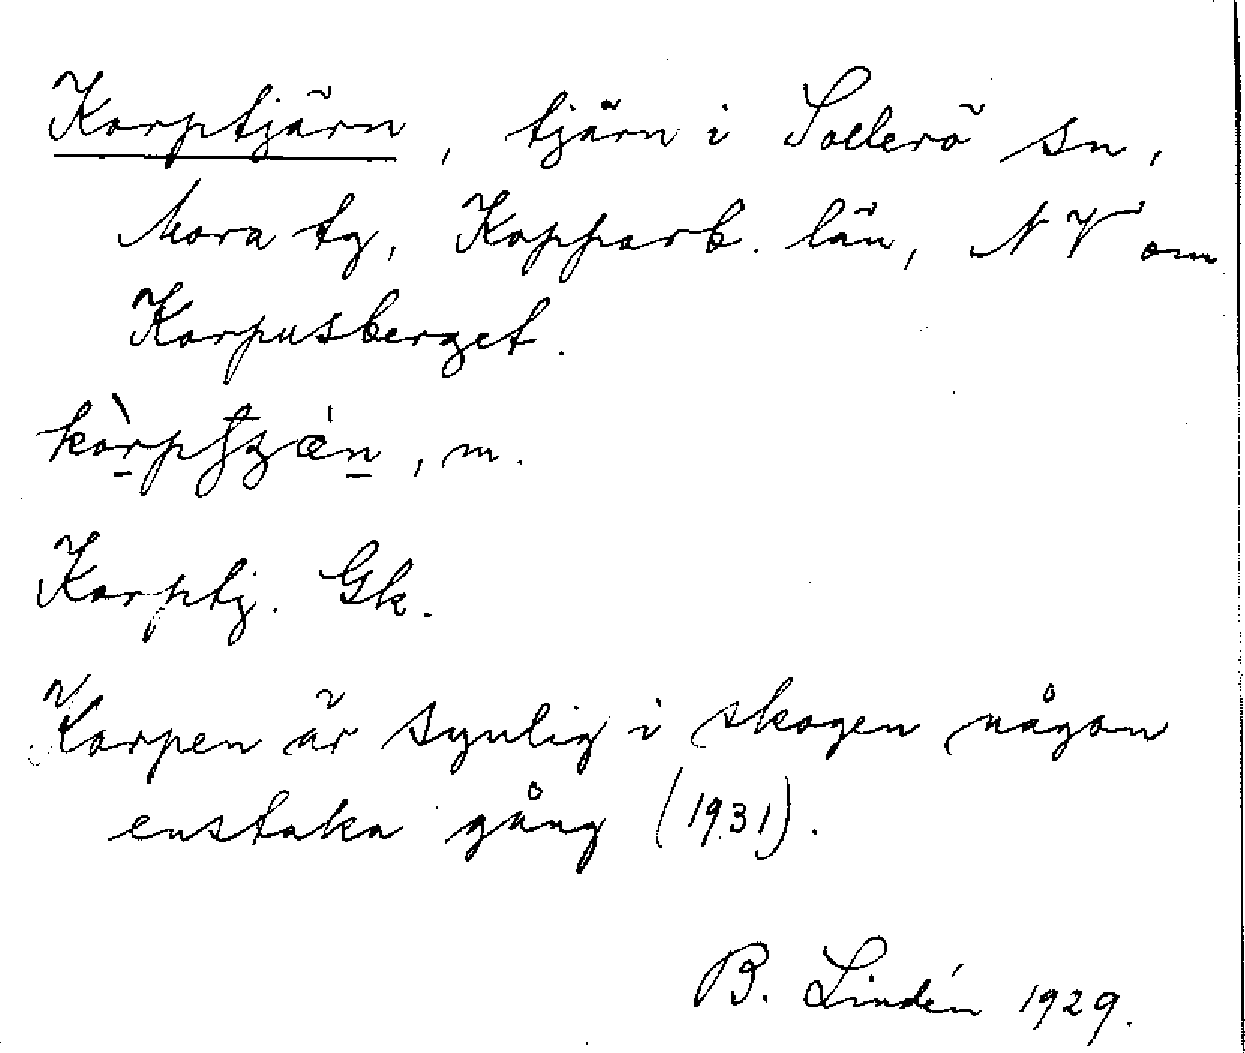 Korptjärn, tjärn i Sollerö sn,
Mora tg, Kopparb. län, NV om
Korpusberget.
, m.
Korptj. Gk.
Korpen är synlig i skogen någon
enstaka gång (1931).
B. Lindén 1929.